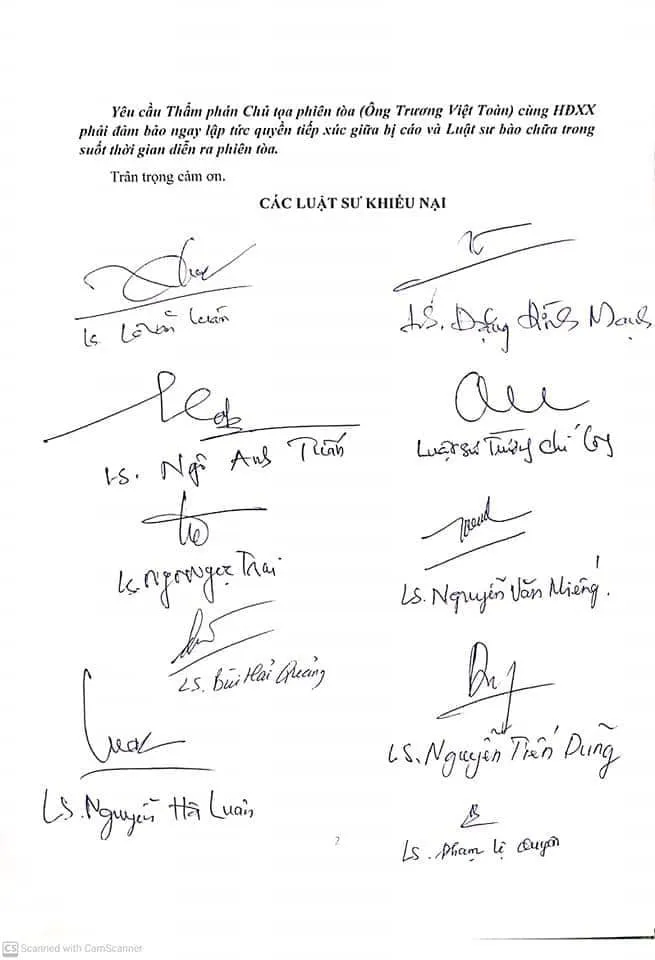 Yêu cầu Thẩm phán Chủ tọa phiên tòa (Ông Trương Việt Toàn) cùng HĐXX
phải đảm bảo ngay lập tức quyền tiếp xúc giữa bị cáo và Luật sư bào chữa trong
suốt thời gian diễn ra phiên tòa.
Trân trọng cảm ơn.
CÁC LUẬT SƯ KHIẾU NẠI
LS. Lê Văn Luân
LS. Đặng Đình Mạnh
LS. Ngô Anh Tuấn
Luật sư
LS. Ngô Ngọc Trai
LS. Nguyễn Văn Miếng.
LS. Bùi Hải Quảng
LS. Nguyễn Tiến Dũng
LS. Nguyễn Hà Luân
2
LS. Phạm Lệ Quyên
CS Scanned with CamScanner